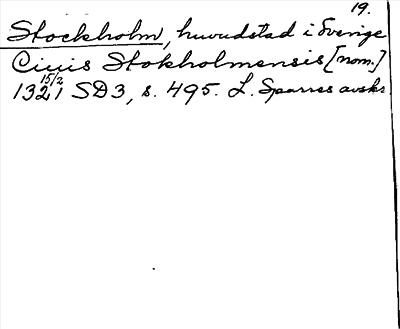 19.
Stockholm, huvudstad i Sverige
Ciuis Stokholmensis [nom.]
15/2
1321 SD3, s. 495. L. Sparres avskr